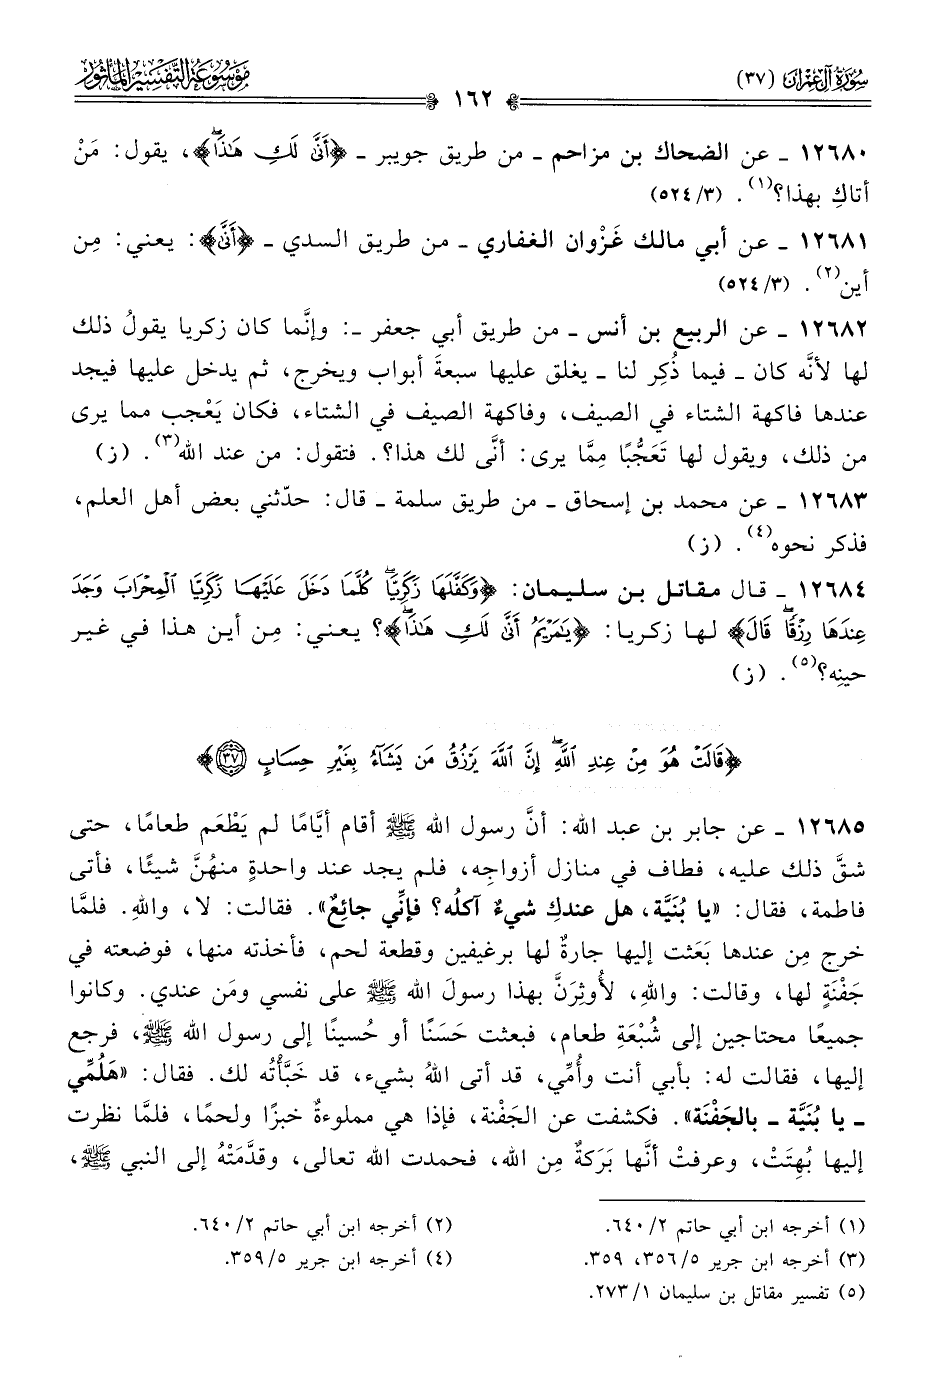 سُورَةُ آلِ عِمْرَان (٣٧)
مَوْسُوعَة التَّفْسِير المَأْثُور
١٦٢
١٢٦٨٠ ـ عن الضحاك بن مزاحم ـ من طريق جويبر ـ ﴿أَنَّىٰ لَكِ هَٰذَاۖ﴾، يقول: مَنْ
أتاكِ بهذا؟(١). (٣/ ٥٢٤)
١٢٦٨١ ـ عن أبي مالك غَزْوان الغفاري ـ من طريق السدي ـ ﴿أَنَّىٰ﴾: يعني: مِن
أين(٢). (٣/ ٥٢٤)
١٢٦٨٢ ـ عن الربيع بن أنس ـ من طريق أبي جعفر ـ: وإنَّما كان زكريا يقولُ ذلك
لها لأنَّه كان ـ فيما ذُكِر لنا ـ يغلق عليها سبعةَ أبواب ويخرج، ثم يدخل عليها فيجد
عندها فاكهة الشتاء في الصيف، وفاكهة الصيف في الشتاء، فكان يَعْجب مما يرى
من ذلك، ويقول لها تَعَجُّبًا مِمَّا يرى: أنَّى لك هذا؟. فتقول: من عند الله(٣). (ز)
١٢٦٨٣ ـ عن محمد بن إسحاق ـ من طريق سلمة ـ قال: حدّثني بعض أهل العلم،
فذكر نحوه(٤). (ز)
١٢٦٨٤ ـ قال مقاتل بن سليمان: ﴿وَكَفَّلَهَا زَكَرِيَّاۖ كُلَّمَا دَخَلَ عَلَيْهَا زَكَرِيَّا ٱلْمِحْرَابَ وَجَدَ
عِندَهَا رِزْقًاۖ قَالَ﴾ لها زكريا: ﴿يَٰمَرْيَمُ أَنَّىٰ لَكِ هَٰذَاۖ﴾؟ يعني: مِن أين هذا في غير
حينِه؟(٥). (ز)
﴿قَالَتْ هُوَ مِنْ عِندِ ٱللَّهِۖ إِنَّ ٱللَّهَ يَرْزُقُ مَن يَشَآءُ بِغَيْرِ حِسَابٍ ٣٧﴾
١٢٦٨٥ ـ عن جابر بن عبد الله: أنَّ رسول الله ﷺ أقام أيَّامًا لم يَطْعَم طعامًا، حتى
شقَّ ذلك عليه، فطاف في منازل أزواجِه، فلم يجد عند واحدةٍ منهُنَّ شيئًا، فأتى
فاطمة، فقال: «يا بُنَيَّة، هل عندكِ شيءٌ آكلُه؟ فإنِّي جائِعٌ». فقالت: لا، واللهِ. فلمَّا
خرج مِن عندها بَعَثت إليها جارةٌ لها برغيفين وقطعة لحم، فأخذته منها، فوضعته في
جَفْنَةٍ لها، وقالت: واللهِ، لأُوثِرَنَّ بهذا رسولَ الله ﷺ على نفسي ومَن عندي. وكانوا
جميعًا محتاجين إلى شُبْعَةِ طعام، فبعثت حَسَنًا أو حُسينًا إلى رسول الله ﷺ، فرجع
إليها، فقالت له: بأبي أنت وأُمِّي، قد أتى اللهُ بشيء، قد خَبَّأْتُه لك. فقال: «هَلُمِّي
ـ يا بُنَيَّة ـ بالجَفْنَة». فكشفت عن الجَفْنة، فإذا هي مملوءةٌ خبزًا ولحمًا، فلمَّا نظرت
إليها بُهِتَتْ، وعرفتْ أنَّها بَرَكةٌ مِن الله، فحمدت الله تعالى، وقدَّمَتْهُ إلى النبي ﷺ،
(١) أخرجه ابن أبي حاتم ٢/ ٦٤٠.
(٢) أخرجه ابن أبي حاتم ٢/ ٦٤٠.
(٣) أخرجه ابن جرير ٥/ ٣٥٦، ٣٥٩.
(٤) أخرجه ابن جرير ٥/ ٣٥٩.
(٥) تفسير مقاتل بن سليمان ١/ ٢٧٣.